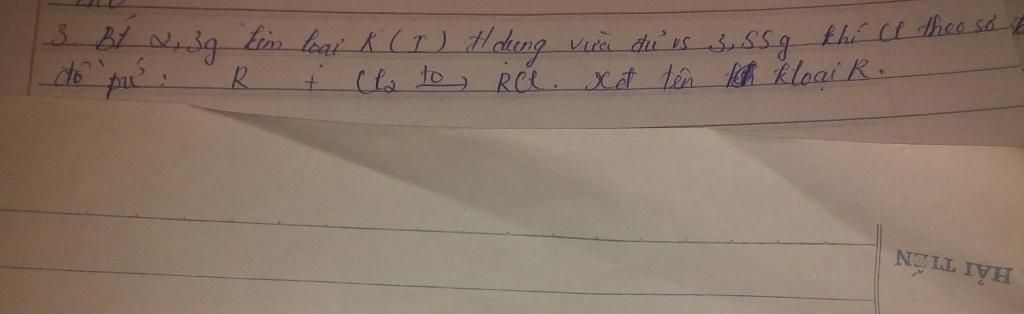 3. Bt 2,3g kim loại R (I) t/dụng vừa đủ vs 3,55g khí Cl theo sơ
đồ pứ: R + Cl₂ t⁰→ RCl. Xđ tên kloại R.
HẢI TIẾN